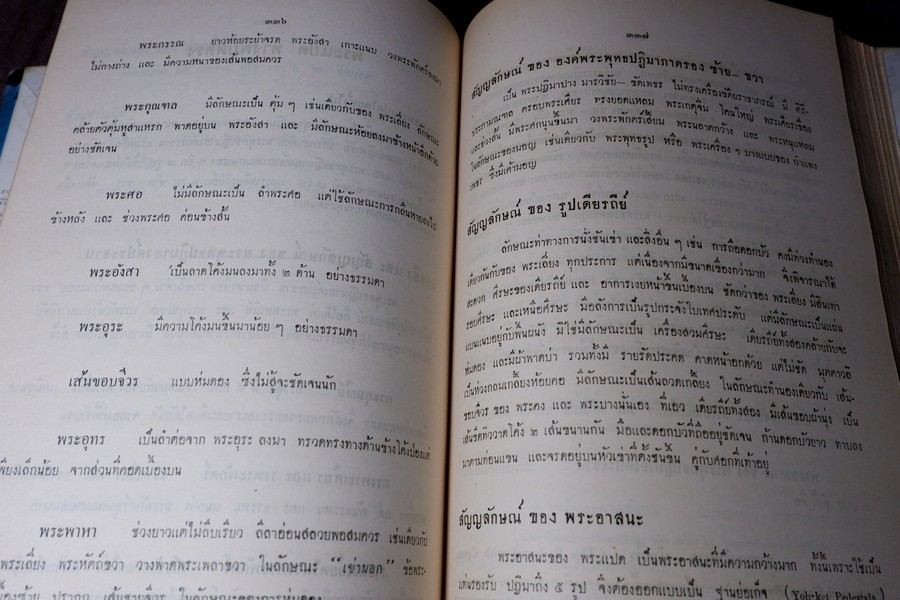 ๓๓๖
พระกรรณ ยาวห้อยระย้าจรด พระอังสา เกาะแนบ วงพระพักตร์ลงมา
ไม่กางถ่าง และ มีความหนาของเส้นพอสมควร
พระกุณฑล มีลักษณะเป็น ตุ้ม ๆ เช่นเดียวกับของ พระเลี่ยง ลักษณะ
คล้ายตัวตุ้มหูสาแหรก พาดอยู่บน พระอังสา และ มีลักษณะห้อยลงมาข้างหน้าอีกด้วย
อย่างชัดเจน
พระศอ ไม่มีลักษณะเป็น ลำพระศอ แต่ใช้ลักษณะการกลืนหายลงไป
ข้างหลัง และ ช่วงพระศอ ค่อนข้างสั้น
พระอังสา เป็นลาดโค้งมนลงมาทั้ง ๒ ด้าน อย่างธรรมดา
พระอุระ มีความโค้งมนขึ้นมาน้อย ๆ อย่างธรรมดา
เส้นขอบจีวร แบบห่มดอง ซึ่งไม่สู้จะชัดเจนนัก
พระอุทร เป็นลำต่อจาก พระอุระ ลงมา ทรวดทรงทางด้านข้างโค้งป่องแต่
เพียงเล็กน้อย จากส่วนที่คอดเบื้องบน
พระพาหา ช่วงยาวแต่ไม่ลีบเรียว ลีลาอ่อนสลวยพอสมควร เช่นเดียวกับ
พระเลี่ยง พระหัตถ์ขวา วางพาดพระเพลาขวา ในลักษณะ "เข่านอก" ข้อพระ-
ปรากฏ เส้นชายจีวร ในลักษณะของการห่มดอง
๓๓๗
สัญญลักษณ์ ของ องค์พระพุทธปฏิมาภาครอง ซ้าย - ขวา
เป็น พระปฏิมาปาง มารวิชัย - ขัดเพชร ไม่ทรงเครื่องขัติยราชาภรณ์ มี ศิริ-
ประภามณฑล ครอบพระเศียร ทรงยอดแหลม พระเกตุจิ่น โคนใหญ่ พระเศียรเขื่อง
และช่วงสั้น มีพระศกนูนขึ้นมา วงพระพักตร์เสี้ยม พระนลาตกว้าง และ พระหนุแหลม
ในลักษณะของมอญ เช่นเดียวกับ พระพุทธรูป หรือ พระเครื่อง ฯ บางแบบของ กำแพง
เพชร ซึ่งมีเค้ามอญ
สัญญลักษณ์ ของ รูปเดียรถีย์
ลักษณะท่าทางการนั่งชันเข่า และสิ่งอื่น ๆ เช่น การถือดอกบัว คงมีท่วงทำนอง
เดียวกันกับของ พระเลี่ยง ทุกประการ แต่เนื่องจากมีขนาดเขื่องกว่ามาก จึงพิจารณาได้
สะดวก ศีรษะของเดียรถีย์ และ อาการเงยหน้าขึ้นเบื้องบน ชัดกว่าของ พระเลี่ยง มีลินเทา
รอบศีรษะ และเหนือศีรษะ มีอลังการเป็นรูปกระจังใบเทศประดับ แต่มีลักษณะเป็นแผ่น
แบนแนบอยู่กับพื้นผนัง มิใช่มีลักษณะเป็น เครื่องสวมศีรษะ เดียรถีย์ทั้งสองคล้ายกับจะ
ห่มดอง และมีผ้าพาดบ่า รวมทั้งมี รายรัดประคด คาดหน้าอกด้วย แต่ไม่ชัด มุคดาวลี
เป็นห่วงกลมเกลี้ยงห้อยคอ มีลักษณะเป็นเส้นลวดเกลี้ยง ในลักษณะทำนองเดียวกับ เส้น-
ขอบจีวร ของ พระคง และ พระบางนั่นเอง ที่เอว เดียรถีย์ทั้งสอง มีเส้นขอบผ้านุ่ง เป็น
เส้นขีดทิววาดโค้ง ๒ เส้นขนานกัน มือและดอกบัวที่ถืออยู่ชัดเจน ก้านดอกบัวยาว ทาบลง
มาตามท่อนแขน และจรดอยู่บนหัวเข่าที่ตั้งชันขึ้น คู่กับศอกที่เท้าอยู่
สัญญลักษณ์ ของ พระอาสนะ
พระอาสนะของ พระแปด เป็นพระอาสนะที่มีความกว้างมาก ทั้งนี้เพราะใช้เป็น
แท่นรองรับ ปฏิมาถึง ๕ รูป จึงต้องออกแบบเป็น ฐานย่อเก็จ (Yoh-ket Pedestals)